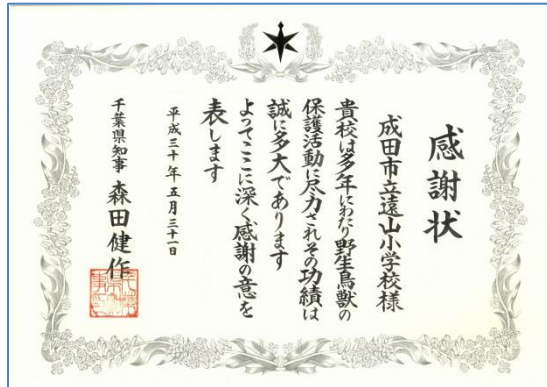 感謝状
成田市立遠山小学校様
貴校は多年にわたり野生鳥獣の
保護活動に尽力されその功績は
誠に多大であります
よってここに深く感謝の意を
表します
平成三十年五月三十一日
千葉県知事 森田健作